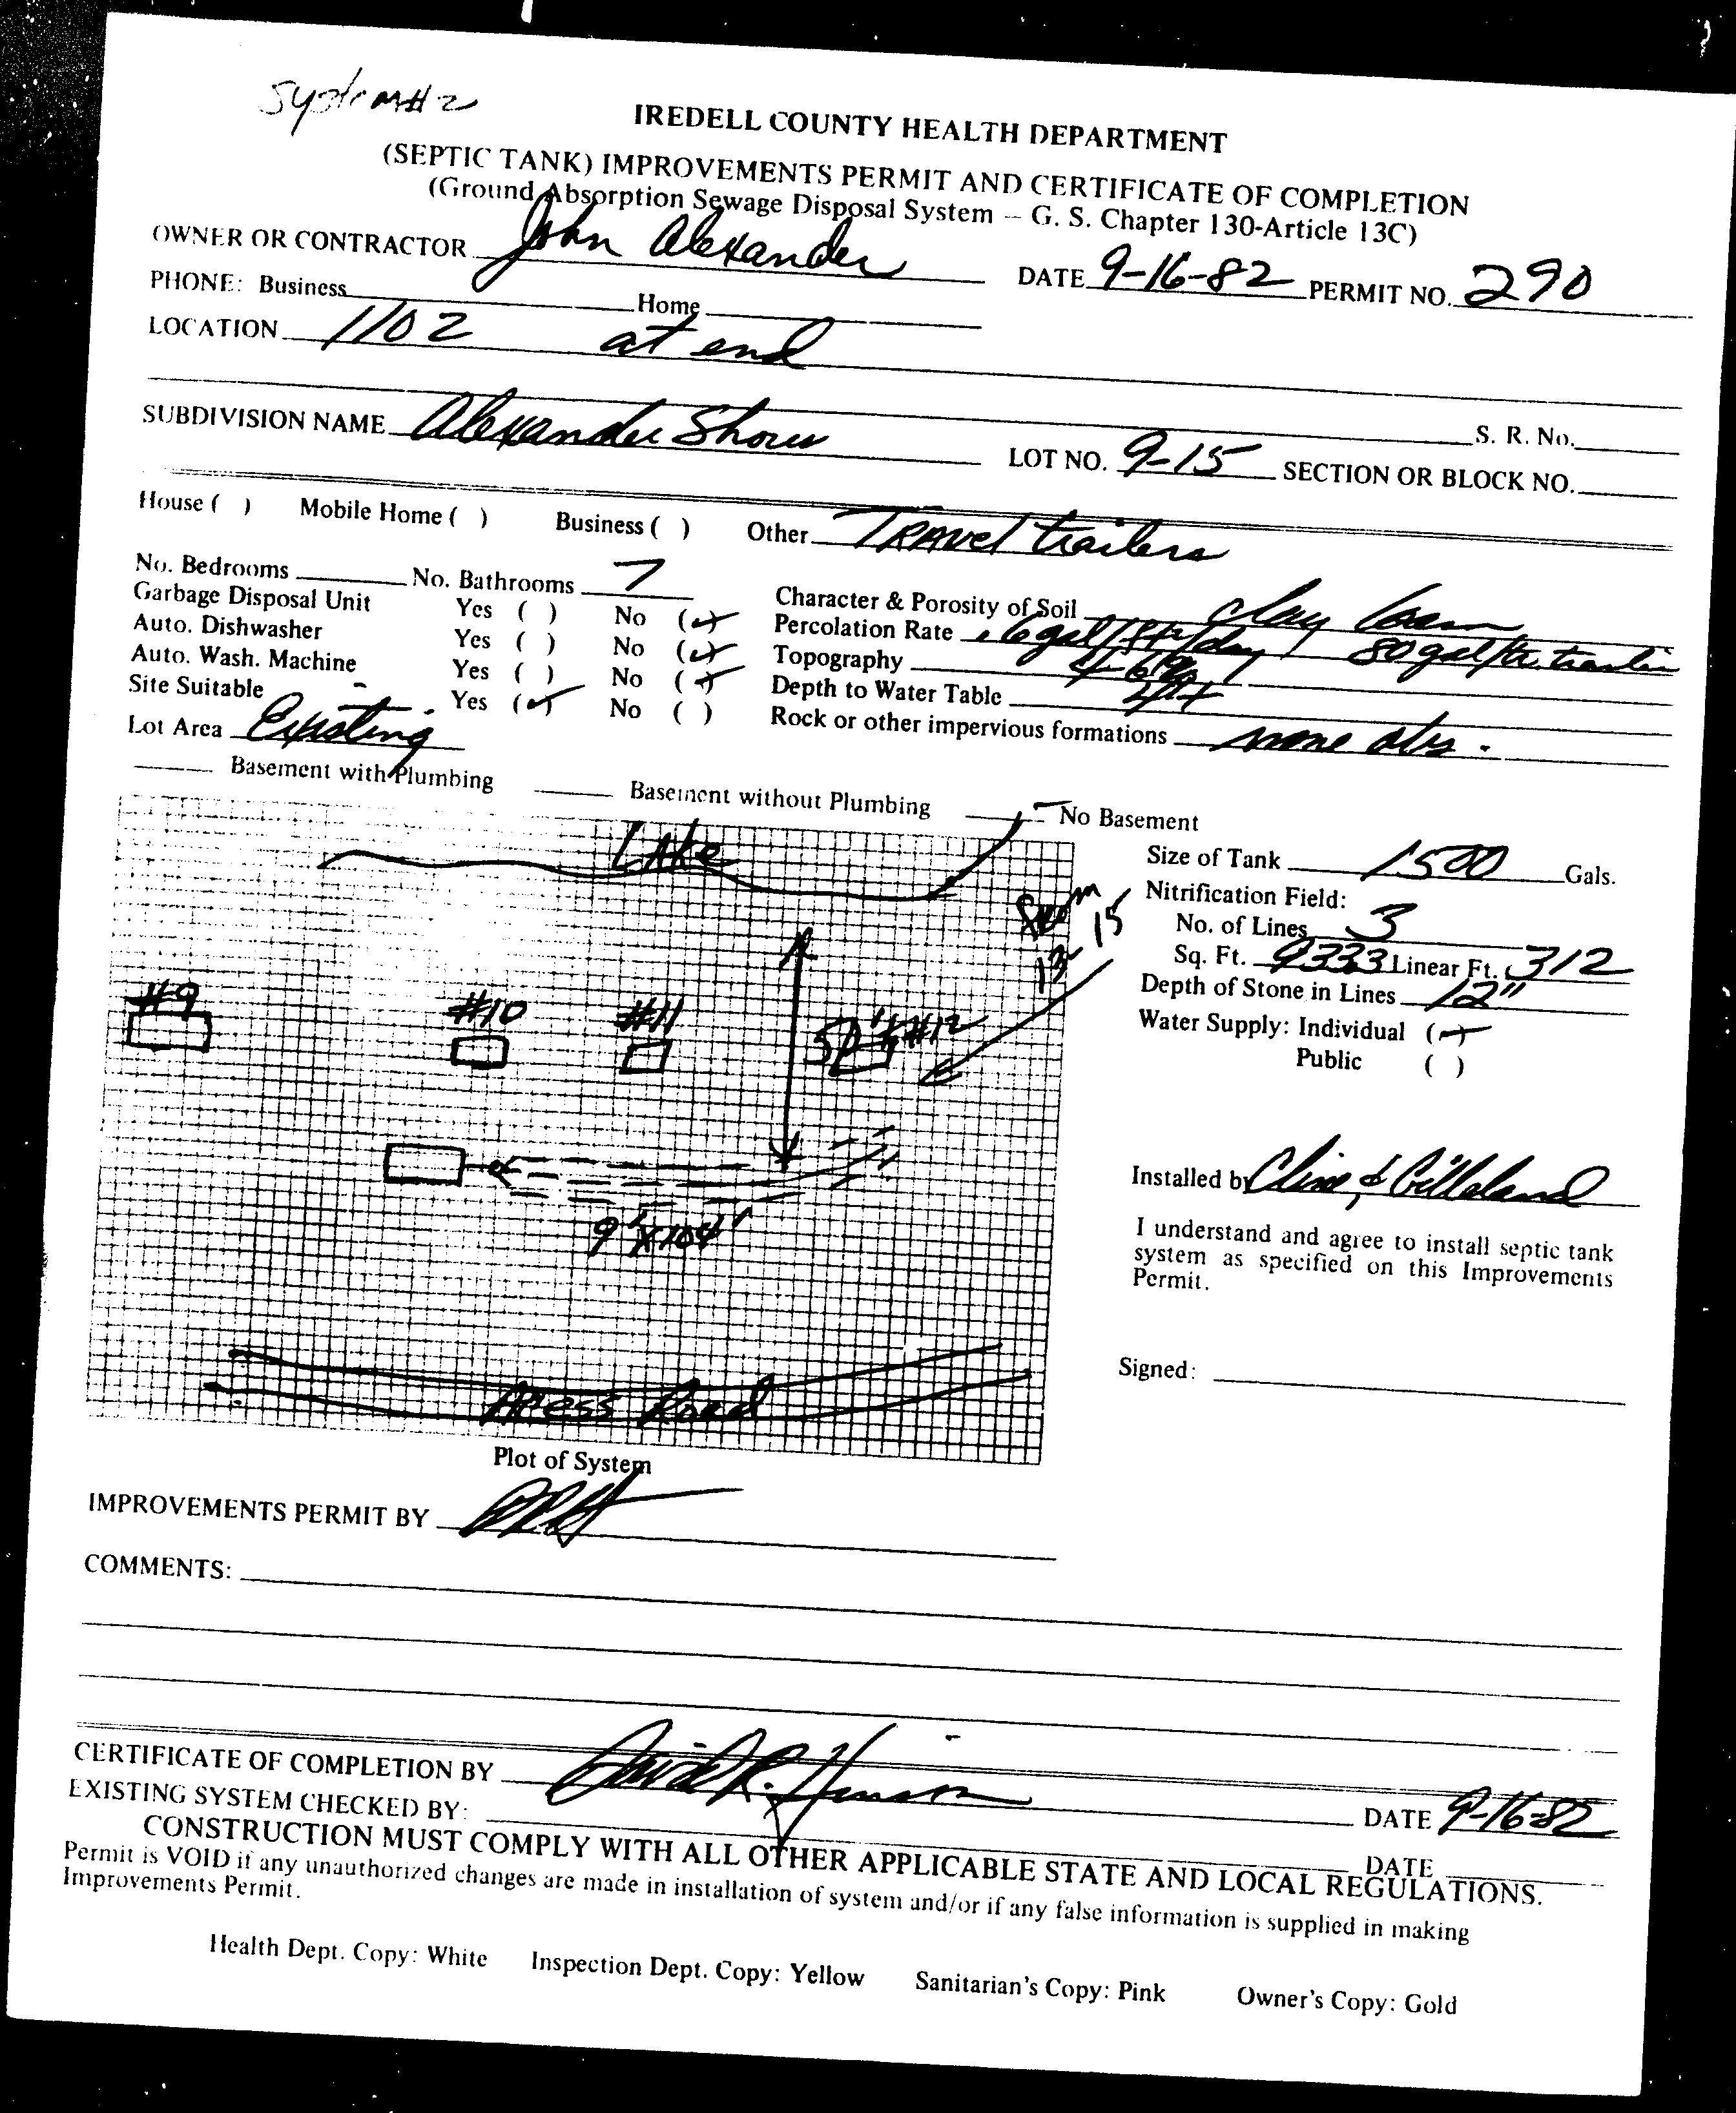 System#2
IREDELL COUNTY HEALTH DEPARTMENT
(SEPTIC TANK) IMPROVEMENTS PERMIT AND CERTIFICATE OF COMPLETION
(Ground Absorption Sewage Disposal System – G. S. Chapter 130-Article 13C)
OWNER OR CONTRACTOR John Alexander DATE 9-16-82 PERMIT NO. 290
PHONE: Business Home
LOCATION 1102 at end
S. R. No.
SUBDIVISION NAME Alexander Shores LOT NO. 9-15 SECTION OR BLOCK NO.
House ( ) Mobile Home ( ) Business ( ) Other TRAVEl trailers
No. Bedrooms No. Bathrooms 7
Garbage Disposal Unit Yes ( ) No (✓)
Auto. Dishwasher Yes ( ) No (✓)
Auto. Wash. Machine Yes ( ) No (✓)
Site Suitable Yes (✓) No ( )
Lot Area Existing
Character & Porosity of Soil clay loam
Percolation Rate .6 gal/ft²/day 80 gal/tr.
Topography 4-6%
Depth to Water Table
Rock or other impervious formations none obs.
Basement with Plumbing Basement without Plumbing No Basement
LAke
#9
#10
#11
50' #12
13 15
9'X104'
Access Road
Plot of System
Size of Tank 1500 Gals.
Nitrification Field:
No. of Lines 3
Sq. Ft. 9333 Linear Ft. 312
Depth of Stone in Lines 12"
Water Supply: Individual (✓)
Public ( )
Installed by Cline & Gilleland
I understand and agree to install septic tank
system as specified on this Improvements
Permit.
Signed:
IMPROVEMENTS PERMIT BY DRH
COMMENTS:
CERTIFICATE OF COMPLETION BY David R. Henson DATE 9-16-82
EXISTING SYSTEM CHECKED BY: DATE
CONSTRUCTION MUST COMPLY WITH ALL OTHER APPLICABLE STATE AND LOCAL REGULATIONS.
Permit is VOID if any unauthorized changes are made in installation of system and/or if any false information is supplied in making
Improvements Permit.
Health Dept. Copy: White Inspection Dept. Copy: Yellow Sanitarian's Copy: Pink Owner's Copy: Gold